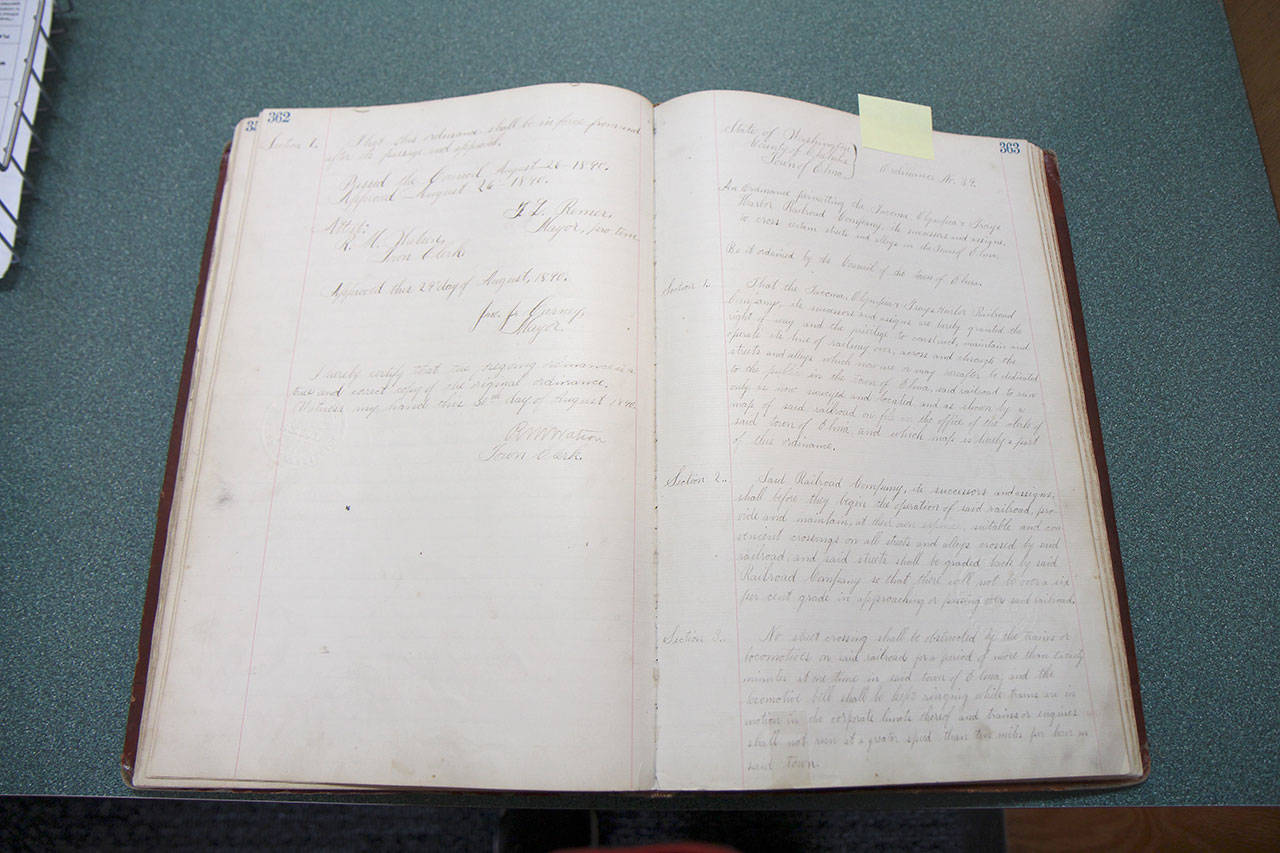 362
Section 1.
That this ordinance shall be in force from and
after its passage and approval.
Passed the Council August 26 - 1890.
Approved August 26 - 1890.
Mayor, pro tem
Attest:
Town Clerk.
Approved this 29th day of August, 1890.
Mayor.
I hereby certify that the foregoing ordinance is a
true and correct copy of the original ordinance.
Witness my hand this 30th day of August 1890.
R M Watson
Town Clerk.
363
State of Washington
County of Chehalis
Town of Elma.
Ordinance No. 39.
An Ordinance permitting the Tacoma, Olympia & Grays
Harbor Railroad Company, its successors and assigns,
to cross certain streets and alleys in the Town of Elma.
Be it ordained by the Council of the Town of Elma.
Section 1.
That the Tacoma, Olympia & Grays Harbor Railroad
Company, its successors and assigns are hereby granted the
right of way and the privilege to construct, maintain and
operate its line of railway over, across and through the
streets and alleys which now are or may hereafter be dedicated
to the public in the town of Elma, said railroad to run
only as now surveyed and located and as shown by a
map of said railroad on file in the office of the clerk of
said town of Elma, and which map is hereby a part
of this ordinance.
Section 2.
Said Railroad Company, its successors and assigns,
shall before they begin the operation of said railroad, pro-
vide and maintain, at their own expense, suitable and con
venient crossings on all streets and alleys crossed by said
railroad, and said streets shall be graded back by said
Railroad Company so that there will not be over a six
per cent grade in approaching or passing over said railroad.
Section 3.
No street crossing shall be obstructed by the trains or
locomotives on said railroad for a period of more than twenty
minutes at one time in said town of Elma, and the
locomotive bell shall be kept ringing while trains are in
motion in the corporate limits thereof and trains or engines
shall not run at a greater speed than ten miles per hour in
said town.